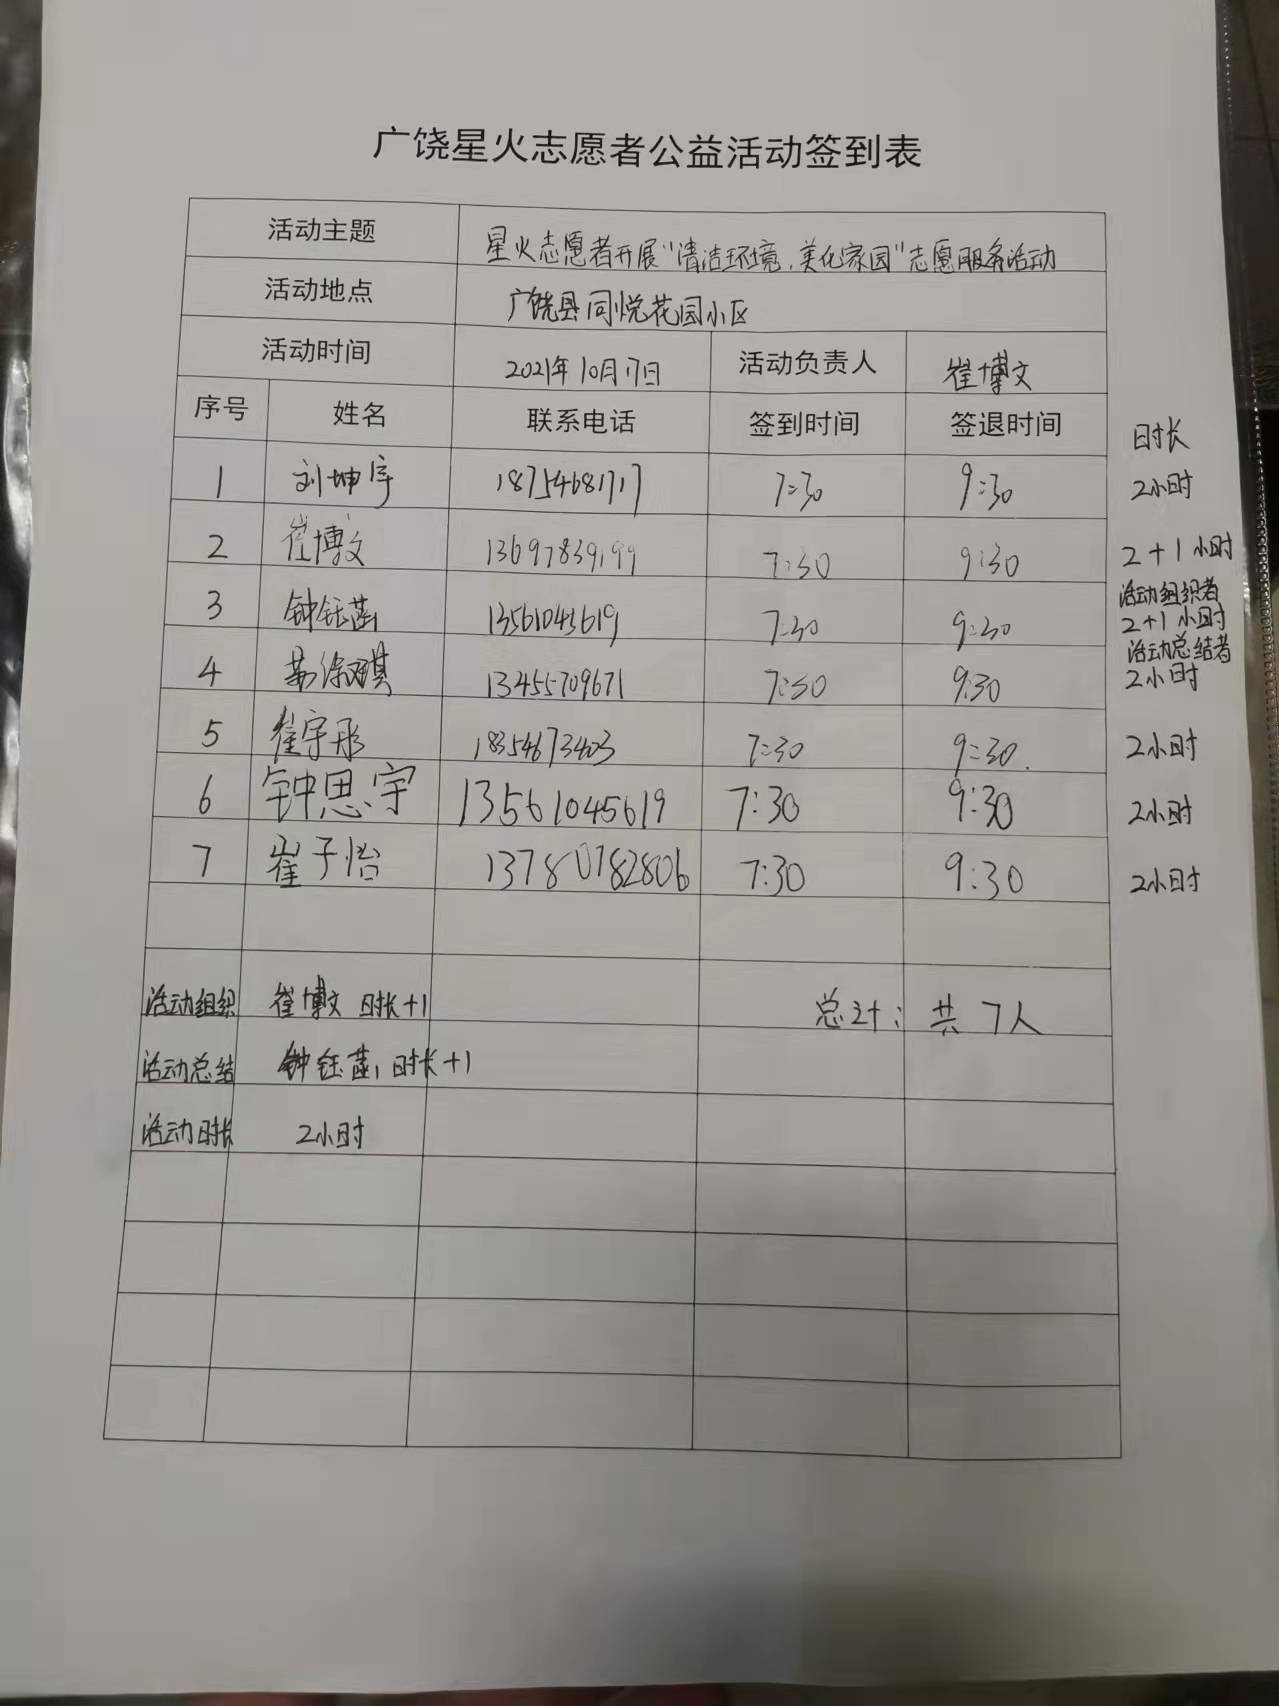 广饶星火志愿者公益活动签到表
活动主题 星火志愿者开展“清洁环境,美化家园”志愿服务活动
活动地点 广饶县同悦花园小区
活动时间 2021年10月17日 活动负责人 崔博文
序号 姓名 联系电话 签到时间 签退时间 时长
1 刘坤宇 18754681717 7:30 9:30 2小时
2 崔博文 13697839199 7:30 9:30 2+1小时
活动组织者
3 钟钰菡 13561045619 7:30 9:30 2+1小时
活动总结者
4 13455709671 7:30 9:30 2小时
5 崔宇彤 18354673403 7:30 9:30. 2小时
6 钟思宇 13561045619 7:30 9:30 2小时
7 崔子怡 13780782806 7:30 9:30 2小时
活动组织 崔博文 时长+1 总计: 共7人
活动总结 钟钰菡 时长+1
活动时长 2小时